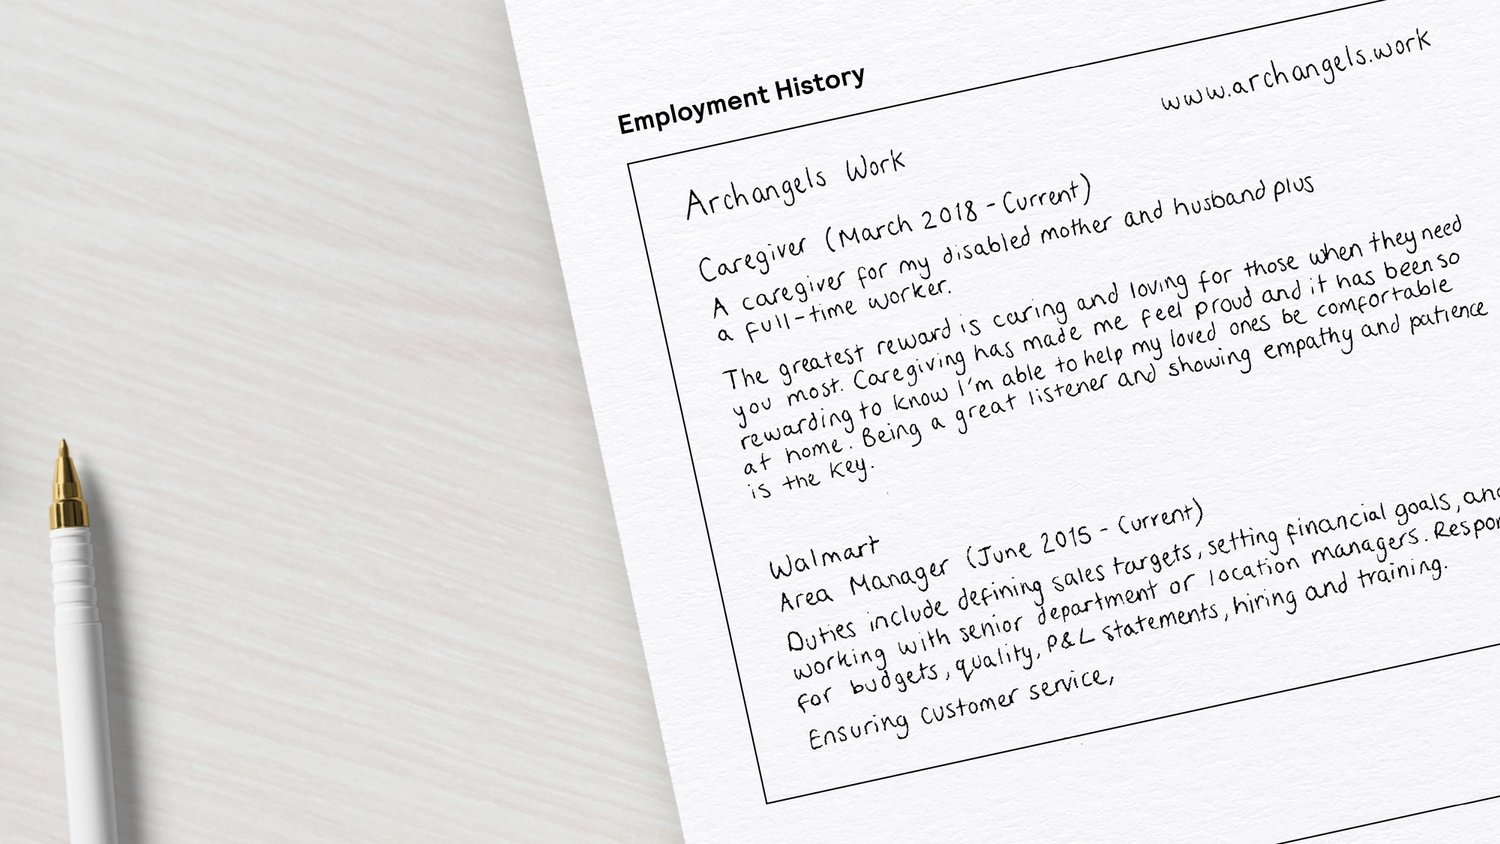 Employment History
www.archangels.work
Archangels Work
Caregiver (March 2018 - Current)
A caregiver for my disabled mother and husband plus
a full-time worker.
The greatest reward is caring and loving for those when they need
you most. Caregiving has made me feel proud and it has been so
rewarding to know I'm able to help my loved ones be comfortable
at home. Being a great listener and showing empathy and patience
is the key.
Walmart
Area Manager (June 2015 - Current)
Duties include defining sales targets, setting financial goals, and
working with senior department or location managers.
for budgets, quality, P&L statements, hiring and training.
Ensuring customer service,